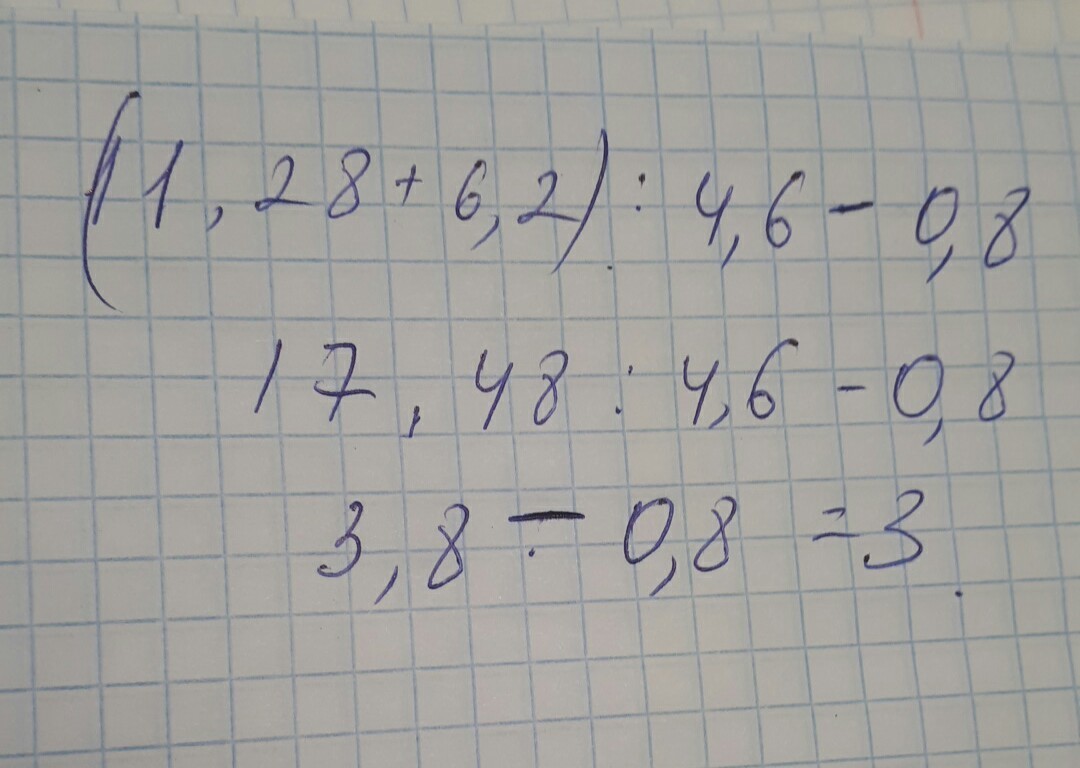 (11,28+6,2):4,6-0,8
17,48:4,6-0,8
3,8-0,8=3